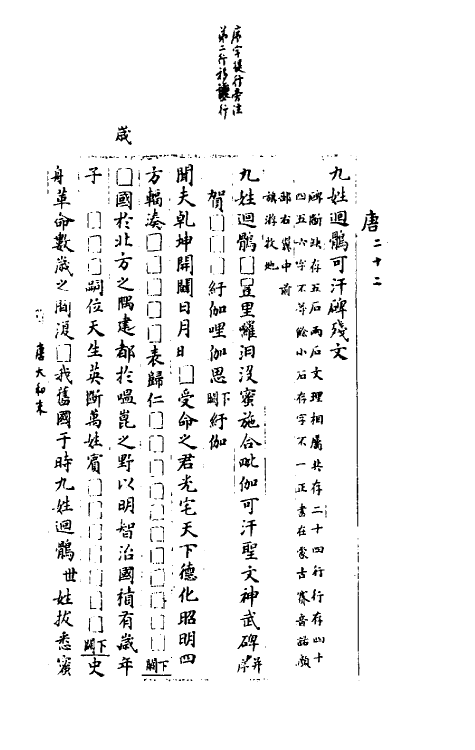 序字提行旁注
第二行移讓行
唐二十二
九姓迴鶻可汗碑殘文
碑斷缺存五石兩石文理相屬共存二十四行行存四十
四五六字不等餘小石存字不一正書在蒙古賽音諾顏
部右翼中前
旗游牧地
九姓迴鶻□豆里囉汨沒蜜施合毗伽可汗聖文神武碑并序
賀□□□紆伽哩伽思下闕紆伽
聞夫乾坤開闢日月□□受命之君光宅天下德化昭明四
方輻湊□□□□表歸仁□□□□□□□□下闕
歲
□國於北方之隅建都於嗢崑之野以明智治國積有歲年
子□□□嗣位天生英斷萬姓賓□□□□□□下闕史
冉革命數歲之間復□我舊國于時九姓迴鶻卌姓拔悉蜜
唐大和末